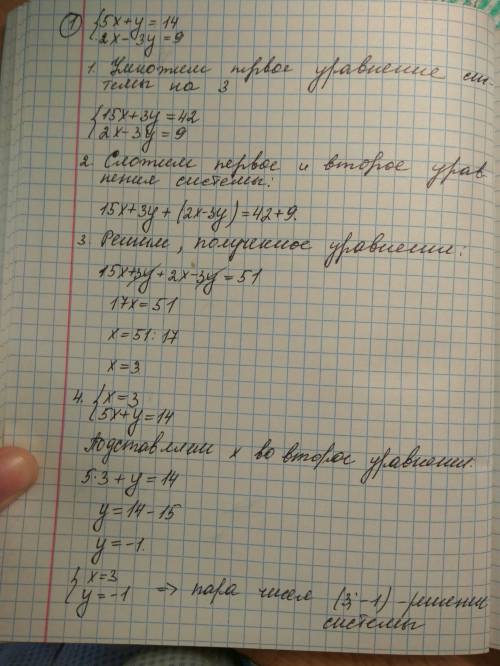 1) {5x+y=14
{2x-3y=9
1. Умножим первое уравнение сис-
темы на 3
{15x+3y=42
{2x-3y=9
2 Сложим первое и второе урав
нения системы:
15x+3y+(2x-3y)=42+9.
3. Решим, полученное уравнение:
15x+3y+2x-3y=51
17x=51
x=51:17
x=3
4. {x=3
{5x+y=14
Подставляем x во второе уравнение.
5·3+y=14
y=14-15
y=-1.
{x=3
{y=-1 => пара чисел (3;-1)-решение
системы